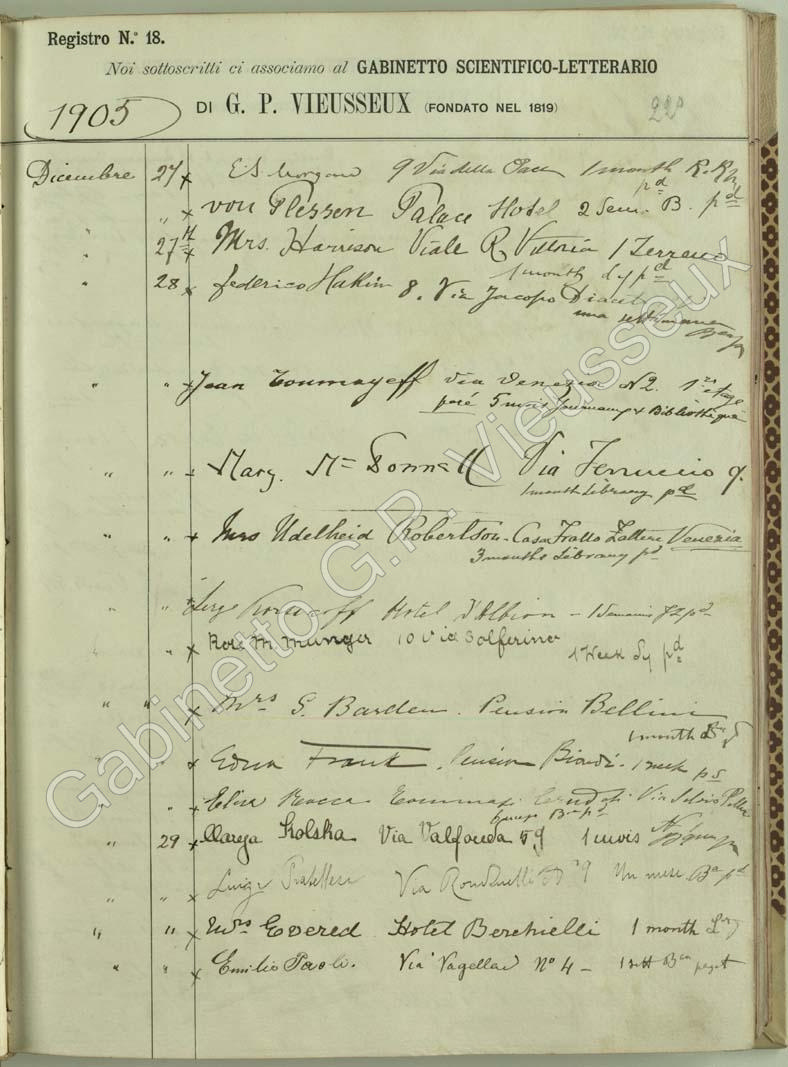 Registro N.º 18.
Noi sottoscritti ci associamo al GABINETTO SCIENTIFICO-LETTERARIO
1905 DI G. P. VIEUSSEUX (FONDATO NEL 1819) 220
Dicembre 27 x E.S. Morgan 9 Via della 1 month
pd
" x von Plessen Palace Hotel 2 Sem. B. pd
" 27 x Mrs. Harrison Viale R. Vittoria 1 Terreno
1 month dy pd
" 28 x Federico Hakim 8. Via Jacopo
una settimana
" " x Jean Toumayeff Via Venezia N 2. 1er étage
payé 5 mois Journaux & Bibliothèque
" " Mary. Mc Donnell Via Ferruccio 9.
1 month Library pd
" " x Mrs Adelheid Robertson - Casa Frollo Zattere Venezia
3 months Library pd
" " Serge Hotel d'Albion - 1
" x Rose M. Munger 10 Via Solferino
1 Week Dy pd
" " x Mrs G. Barden. Pension Bellini
1 month
" " x Edna Frank. Pension Biondi. 1 week
" " x Elisa Rocca Via Silvio
" 29 x Marya Kolska Via Valfonda 59 1 mois
" " Luigi Via Rondinelli Un mese Ba pd
" " x Mrs Evered Hotel Berchielli 1 month
" " x Emilio Paoli. Via Vagellai No 4 - 1 sett
Gabinetto G.P. Vieusseux